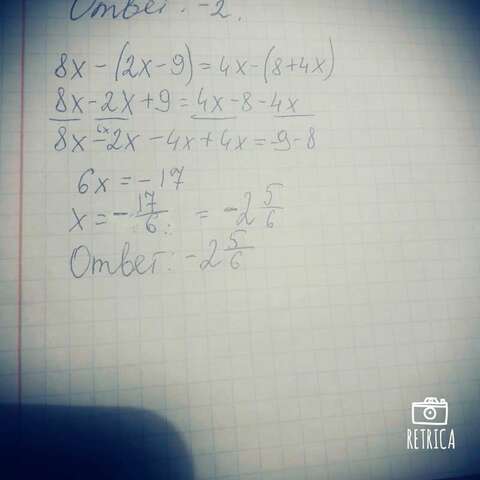 Ответ: -2.
8x - (2x - 9) = 4x - (8 + 4x)
8x - 2x + 9 = 4x - 8 - 4x
6x
8x - 2x - 4x + 4x = -9 - 8
6x = -17
x = - 17/6 = -2 5/6
Ответ: -2 5/6
RETRICA